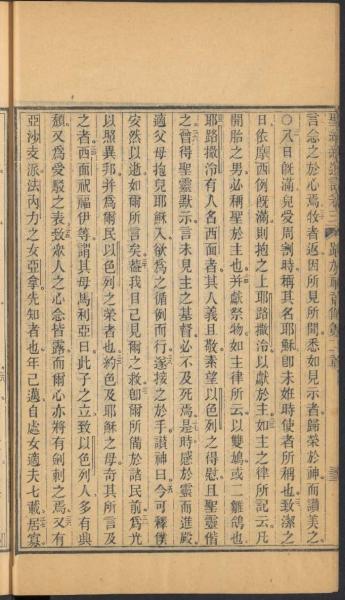 言念之於心焉牧者返因所見所聞悉如見示者歸榮於神而讚美之
○八日旣滿兒受周割時稱其名耶穌卽未姙時使者所稱也致潔之
日依摩西例旣滿則抱之上耶路撒冷以獻於主如主之律所記云凡
開胎之男必稱聖於主也并獻祭物如主律所云以雙鳩或二雛鴿也
耶路撒冷有人名西面者其人義且敬素望以色列之得慰且聖靈偕
之曾得聖靈默示言未見主之基督必不及死焉是時感於靈而進殿
適父母抱兒耶穌入欲爲之循例而行遂接之於手讚神曰今可釋僕
安然以逝如爾所言矣蓋我目己見爾之救卽爾所備於諸民前爲光
以照異邦并爲爾民以色列之榮者也約色及耶穌之母奇其所言及
之者西面祝福伊等謂其母馬利亞曰此子之立致以色列人多有興
頹又爲受駁之表致衆人之心念皆露而爾心亦將有劍刺之焉又有
亞沙支派法內力之女亞拿先知者也年己邁自處女適夫七載居寡